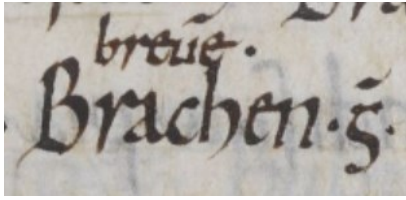 breūe.
Brachen. g̅.